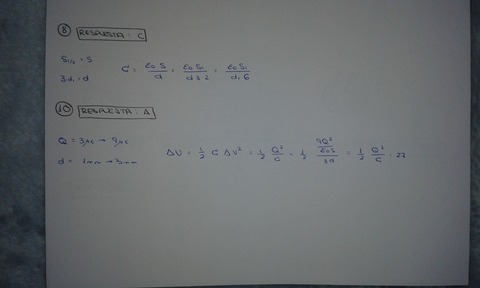 8 RESPUESTA: C
S₁/₂ = S
3·d₁ = d
C = ε₀ S / d = ε₀ S₁ / d 3 2 = ε₀ S₁ / d₁ 6
10 RESPUESTA: A
Q = 3μC → 9μC
d = 1mm → 3mm
ΔU = 1/2 C ΔV² = 1/2 Q²/C = 1/2 9Q² / (ε₀S / 3d) = 1/2 Q²/C · 27